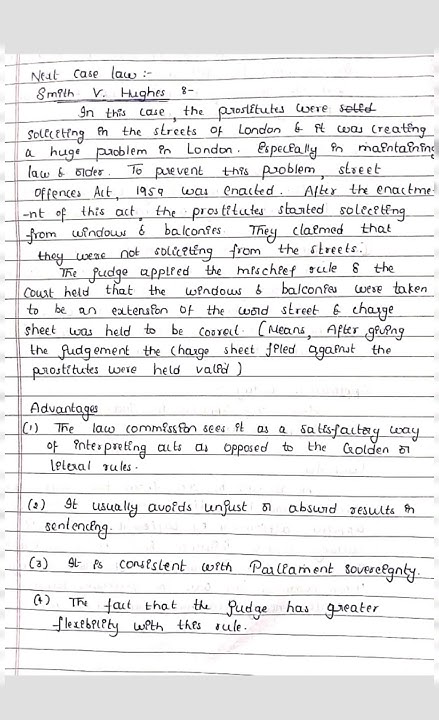 Next case law :-
Smith V. Hughes :-
In this case, the prostitutes were
soliciting in the streets of London & it was creating
a huge problem in London. Especially in maintaining
law & order. To prevent this problem, street
offences Act, 1959 was enacted. After the enactme-
-nt of this act, the prostitutes started soliciting
from windows & balconies. They claimed that
they were not soliciting from the streets.
The judge applied the mischief rule & the
court held that the windows & balconies were taken
to be an extension of the word street & charge
sheet was held to be correct. (Means, After giving
the judgement the charge sheet filed against the
prostitutes were held valid)
Advantages
(1) The law commission sees it as a satisfactory way
of interpreting acts as opposed to the Golden or
leteral rules.
(2) It usually avoids unjust or absurd results in
sentencing.
(3) It is consistent with Parliament sovereignty.
(4) The fact that the judge has greater
flexibility with this rule.